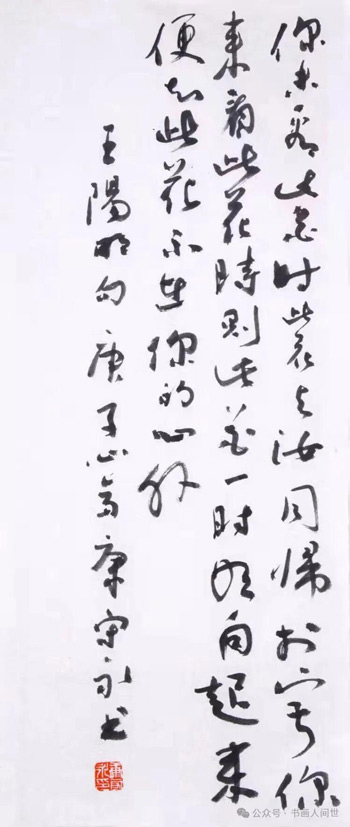 你未看此花时此花与汝同归於寂你
来看此花時则此花一时明白起来
便知此花不在你的心外
王陽明句庚子心斋康守永书
公众号·书画人间世